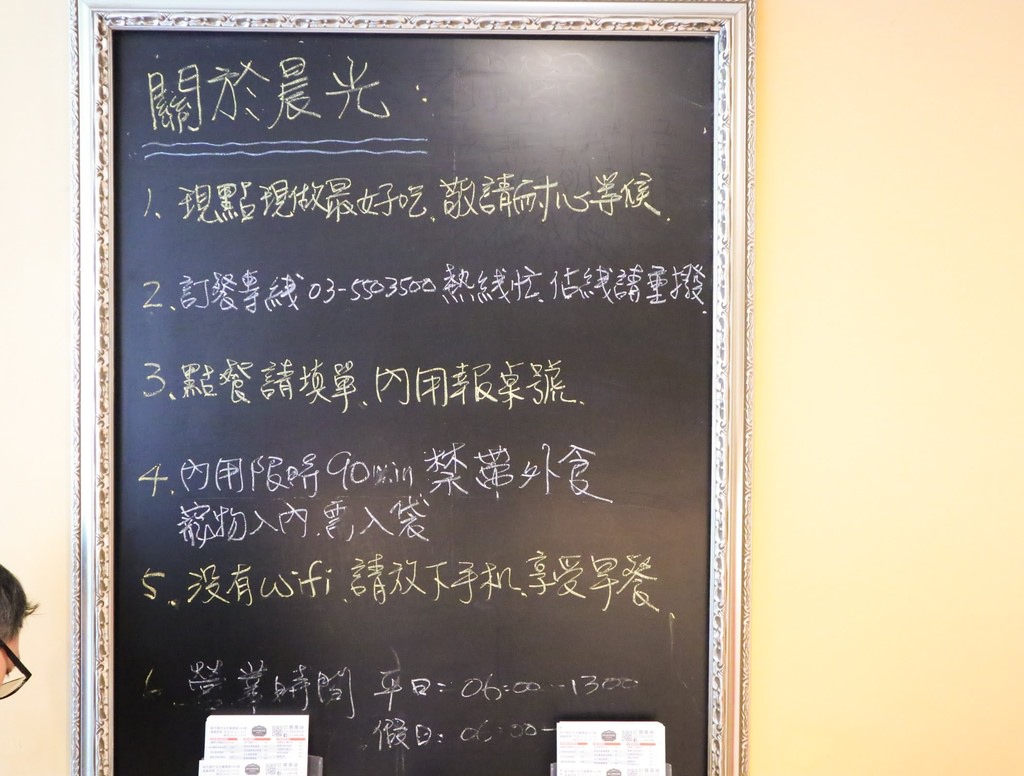 關於晨光:
1. 現點現做最好吃、敬請耐心等候.
2. 訂餐專線 03-5503500 熱線忙、佔線請重撥.
3. 點餐請填單、內用報桌號.
4. 內用限時90min 禁帶外食
寵物入內.需入袋
5. 没有wifi、請放下手机、享受早餐.
6. 營業時間 平日:06:00-1300
假日:06:00-